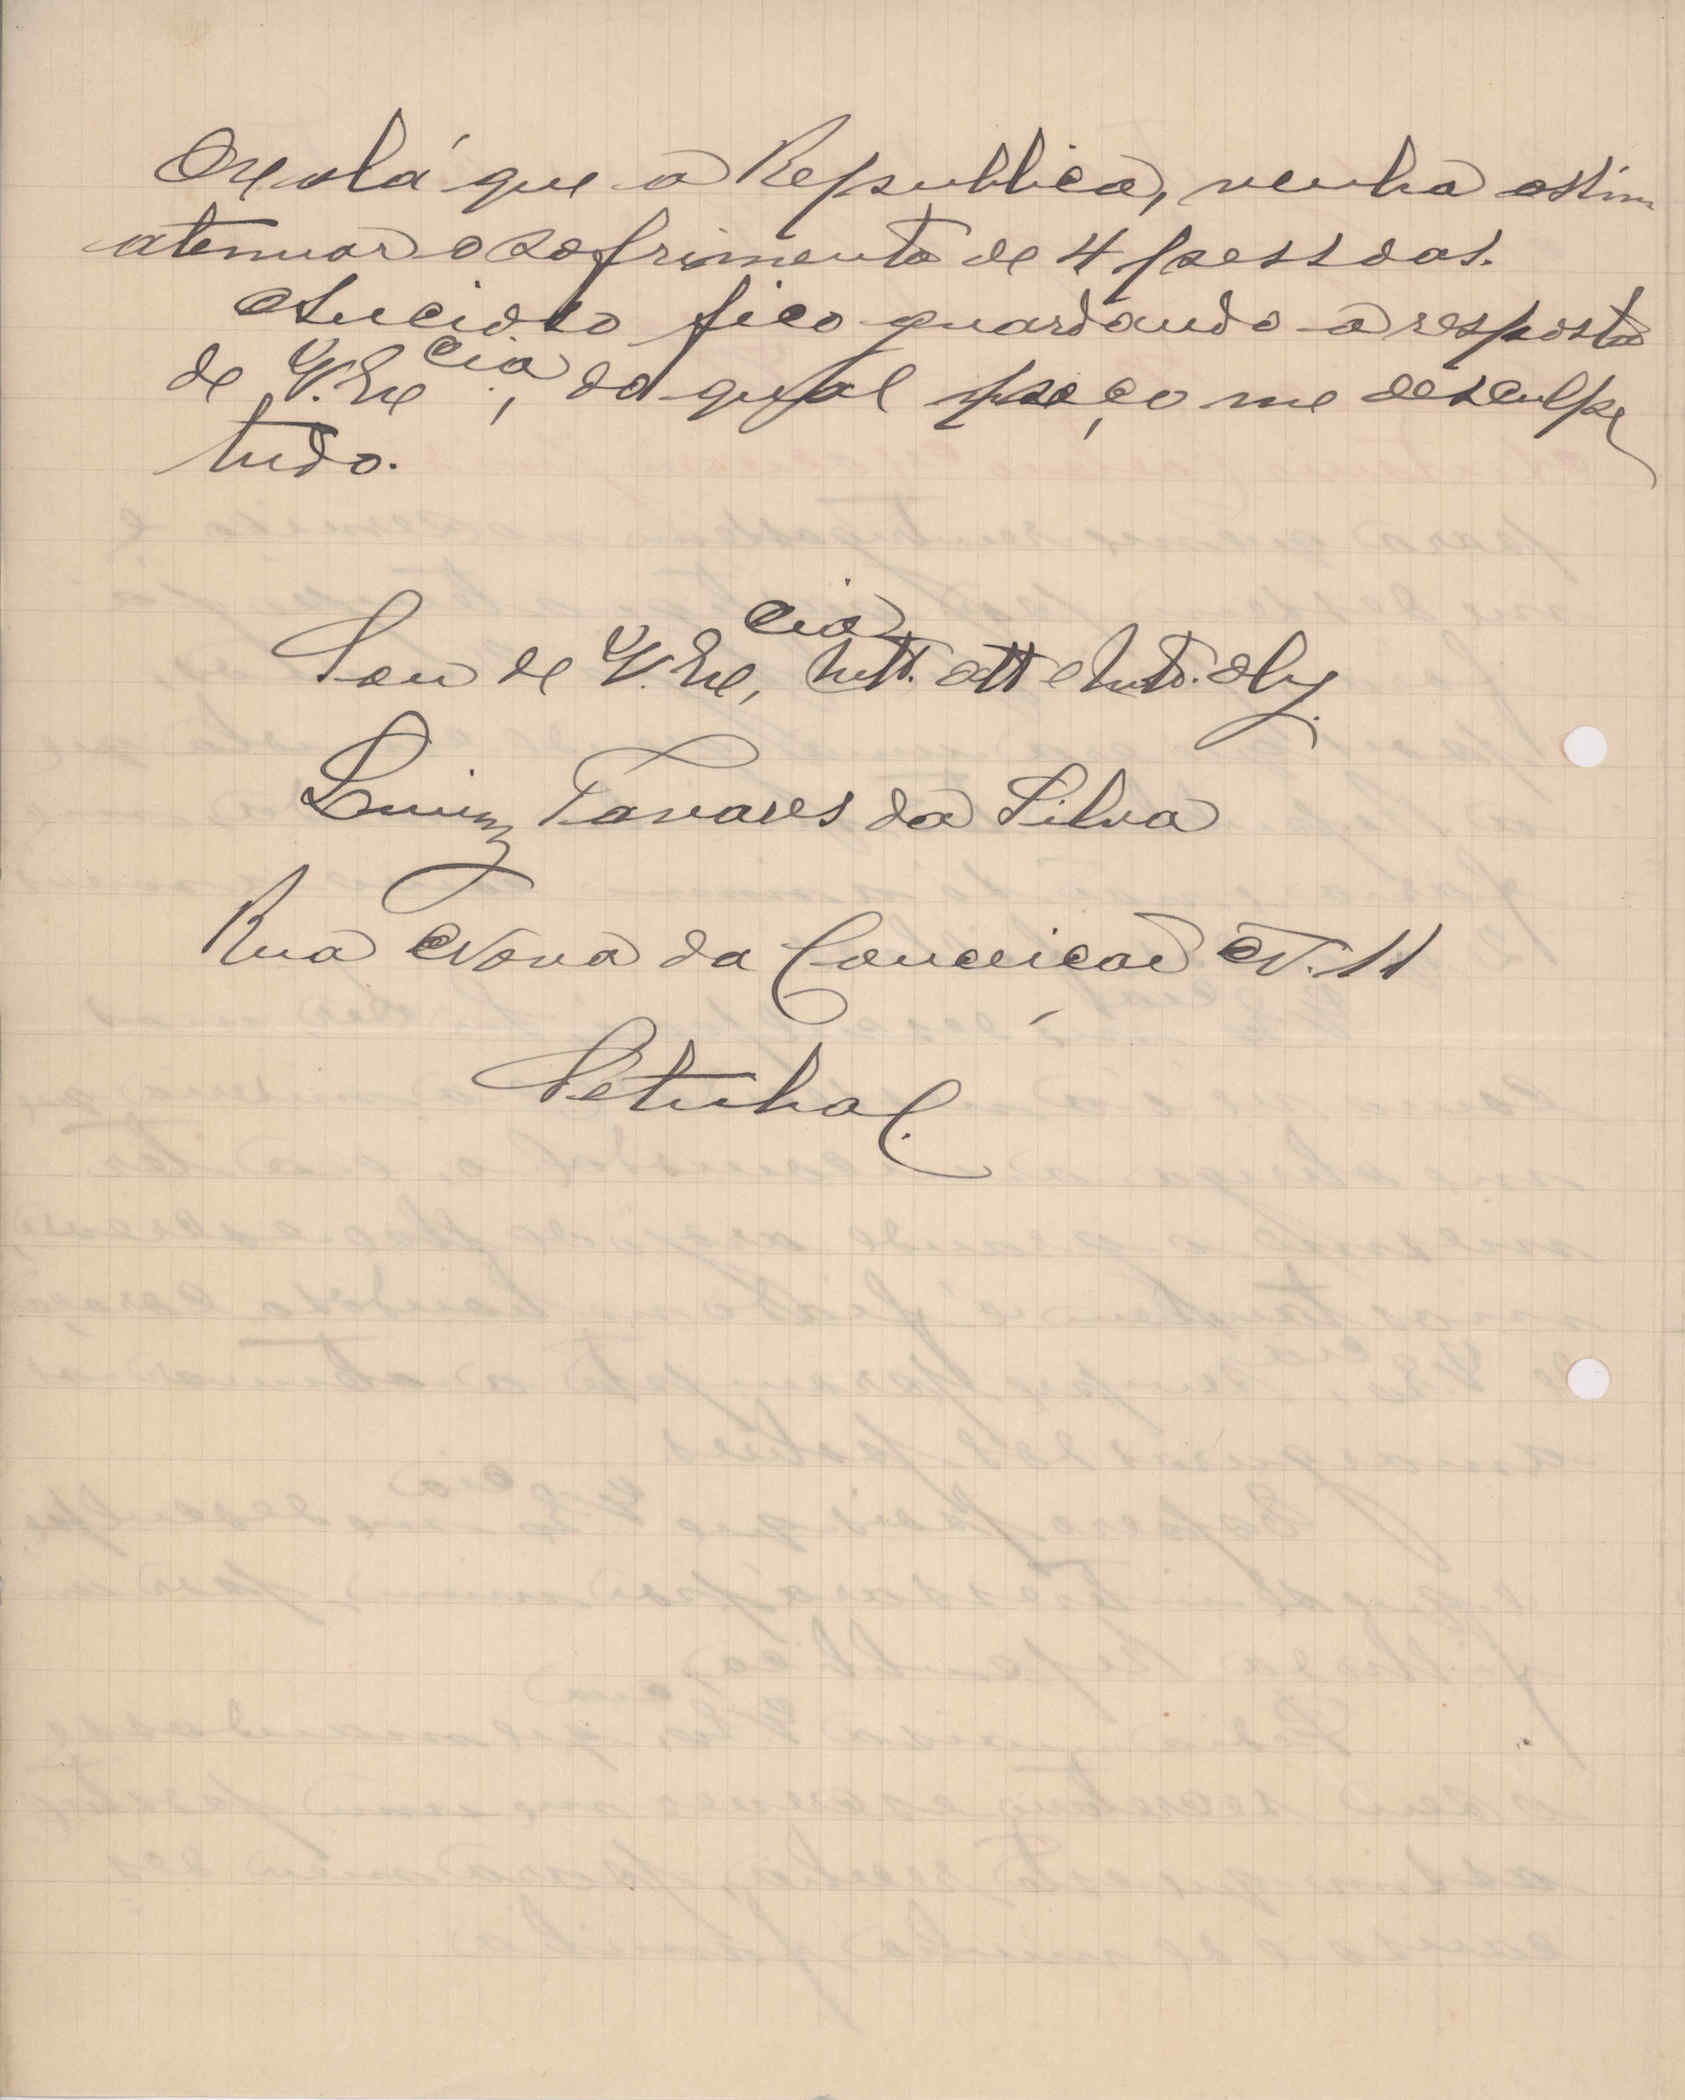 Oxalá que a Republica, venha assim
atenuar o sofrimento de 4 pessoas.
Ancioso fico guardando a resposta
de V. Excia, da qual peço me desculpe
tudo.
Sou de V. Excia, Mtt. att e Mto. Obg.
Luiz Tavares da Silva
Rua Nova da Conceição N. 11
Setubal.